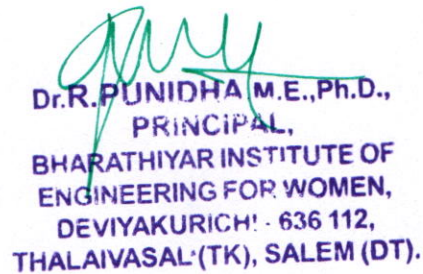 Dr.R.PUNIDHA M.E.,Ph.D.,
PRINCIPAL,
BHARATHIYAR INSTITUTE OF
ENGINEERING FOR WOMEN,
DEVIYAKURICHI - 636 112,
THALAIVASAL (TK), SALEM (DT).